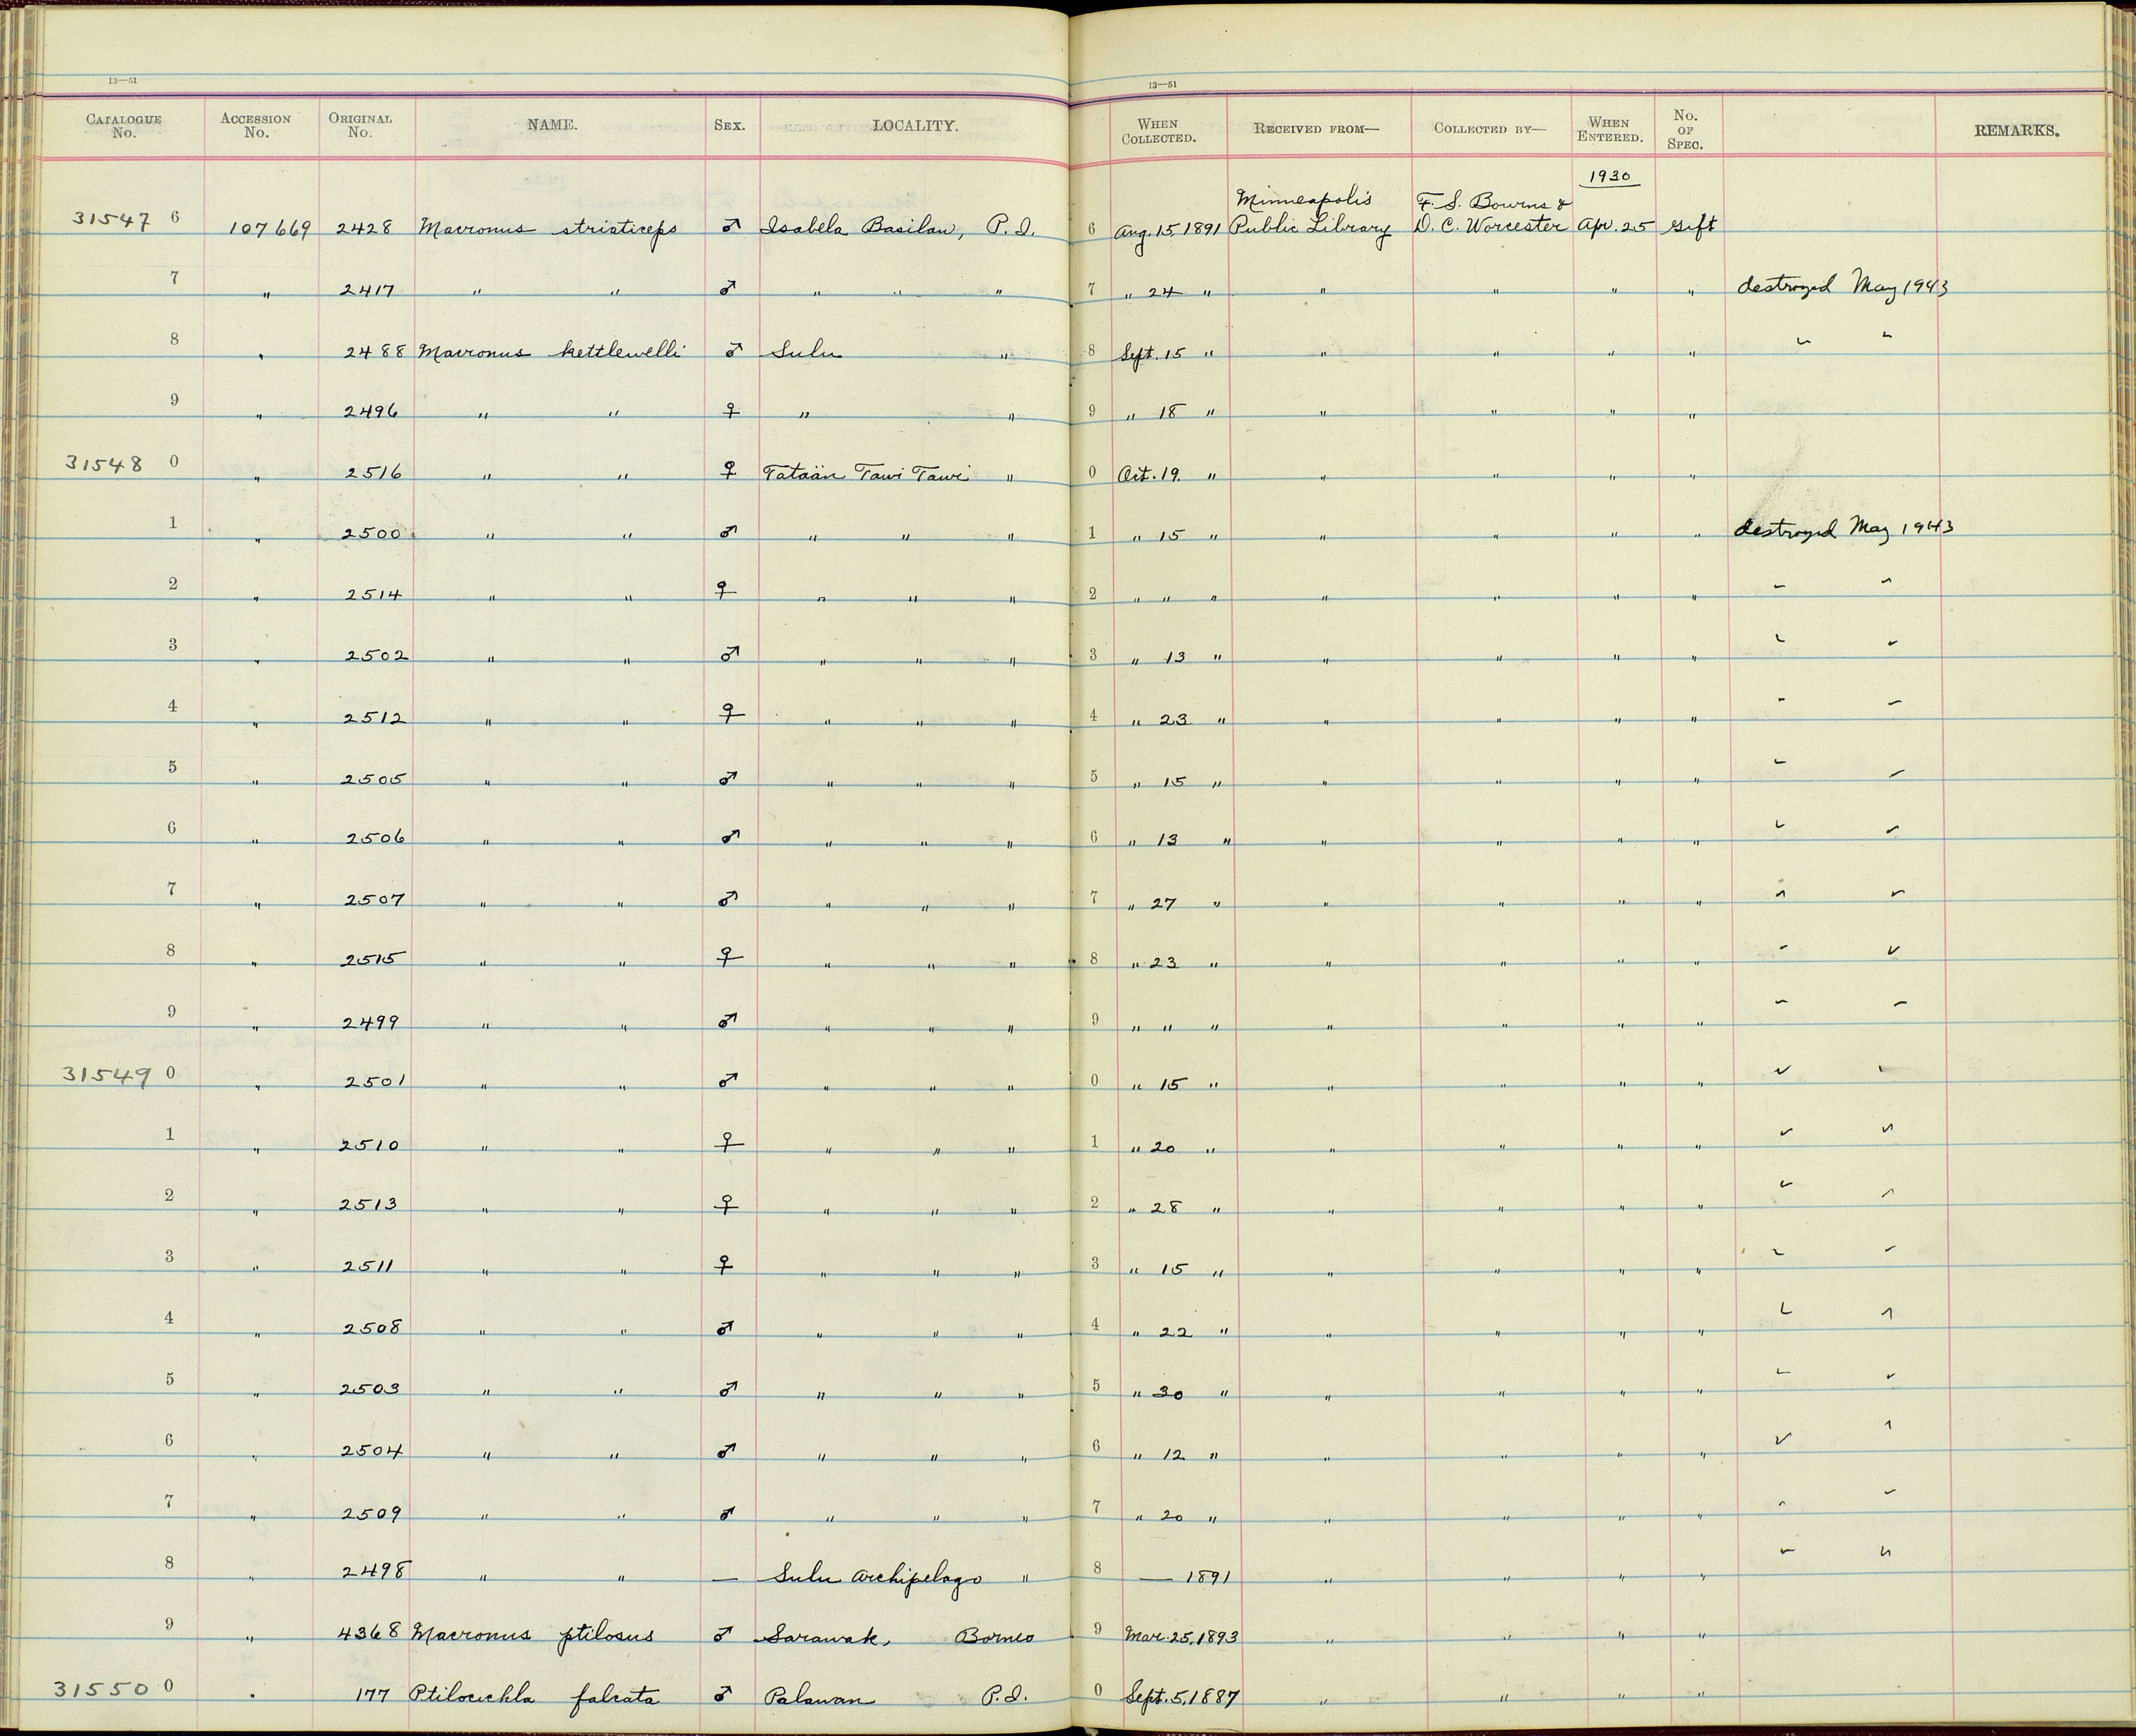 13—51
13—51
CATALOGUE No. ACCESSION No. ORIGINAL No. NAME. SEX. LOCALITY. WHEN COLLECTED. RECEIVED FROM— COLLECTED BY— WHEN ENTERED. No. OF SPEC. REMARKS.
1930
Minneapolis F. S. Bourns &
31547 6 107669 2428 Macronus striaticeps ♂ Isabela Basilan, P.I. 6 Aug. 15, 1891 Public Library D. C. Worcester Apr. 25 gift
7 " 2417 " " ♂ " " " 7 " 24 " " " " " destroyed May 1943
8 " 2488 Macronus kettlewelli ♂ Sulu " 8 Sept. 15 " " " " " " "
9 " 2496 " " ♀ " " 9 " 18 " " " " "
31548 0 " 2516 " " ♀ Tataän Tawi Tawi " 0 Oct. 19. " " " " "
1 " 2500 " " ♂ " " " 1 " 15 " " " " " destroyed May 1943
2 " 2514 " " ♀ " " " 2 " " " " " " " " "
3 " 2502 " " ♂ " " " 3 " 13 " " " " " " "
4 " 2512 " " ♀ " " " 4 " 23 " " " " " " "
5 " 2505 " " ♂ " " " 5 " 15 " " " " " " "
6 " 2506 " " ♂ " " " 6 " 13 " " " " " " "
7 " 2507 " " ♂ " " " 7 " 27 " " " " " " "
8 " 2515 " " ♀ " " " 8 " 23 " " " " " " "
9 " 2499 " " ♂ " " " 9 " " " " " " " " "
31549 0 " 2501 " " ♂ " " " 0 " 15 " " " " " " "
1 " 2510 " " ♀ " " " 1 " 20 " " " " " " "
2 " 2513 " " ♀ " " " 2 " 28 " " " " " " "
3 " 2511 " " ♀ " " " 3 " 15 " " " " " " "
4 " 2508 " " ♂ " " " 4 " 22 " " " " " " "
5 " 2503 " " ♂ " " " 5 " 30 " " " " " " "
6 " 2504 " " ♂ " " " 6 " 12 " " " " " " "
7 " 2509 " " ♂ " " " 7 " 20 " " " " " " "
8 " 2498 " " — Sulu Archipelago " 8 — 1891 " " " " " "
9 " 4368 Macronus ptilosus ♂ Sarawak, Borneo 9 Mar. 25, 1893 " " " "
31550 0 " 177 Ptilocichla falcata ♂ Palawan P.I. 0 Sept. 5, 1887 " " " "